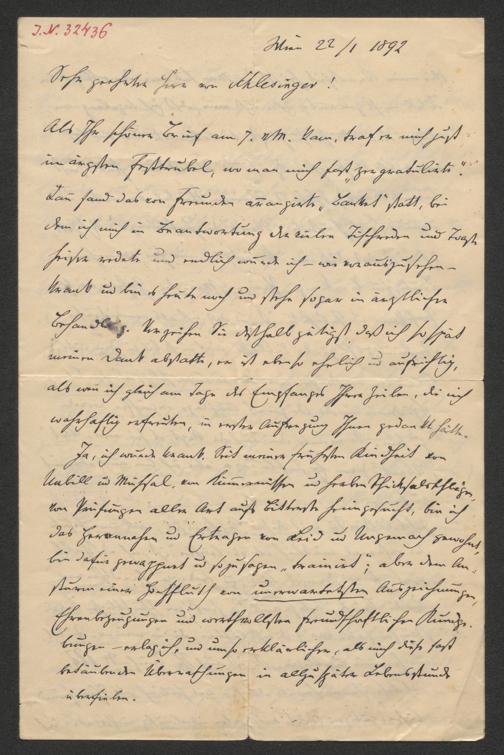 I.N. 32436
Wien 22/1 1892
Sehr geehrter Herr von Schlesinger!
Als Ihr schöner Brief am 7. d/M. kam, traf er mich just
im ärgsten Festtrubel, wo man mich fast „zergratulirte“.
Dann fand das von Freunden arrangirte „Banket“ statt, bei
dem ich mich in Beantwortung der vielen Tischreden und Toaste
heiser redete und endlich wurde ich – wie vorauszusehen –
krank und bin es heute noch und stehe sogar in ärztlicher
Behandlung. Verzeihen Sie deshalb gütigst, daß ich so spät
meinen Dank abstatte, er ist ebenso ehrlich und aufrichtig,
als wenn ich gleich am Tage des Empfanges Ihrer Zeilen, die mich
wahrhaftig erfreuten, in erster Aufregung Ihnen gedankt hätte.
Ja, ich wurde krank. Seit meiner frühesten Kindheit von
Unbill und Mühsal, von Kümmernissen und herben Schicksalsschlägen,
von Prüfungen aller Art aufs Bitterste heimgesucht, bin ich
das Herannahen und Ertragen von Leid und Ungemach gewohnt,
bin dafür gewappnet und so zu sagen „trainirt“; aber dem An-
sturm einer Hochfluth von unerwartetsten Auszeichnungen,
Ehrenbezeugungen und werthvollsten freundschaftlichen Kundge-
bungen – erlag ich, und umso erklärlicher, als mich diese fast
betäubenden Überraschungen in allzuspäter Lebensstunde
überfielen.